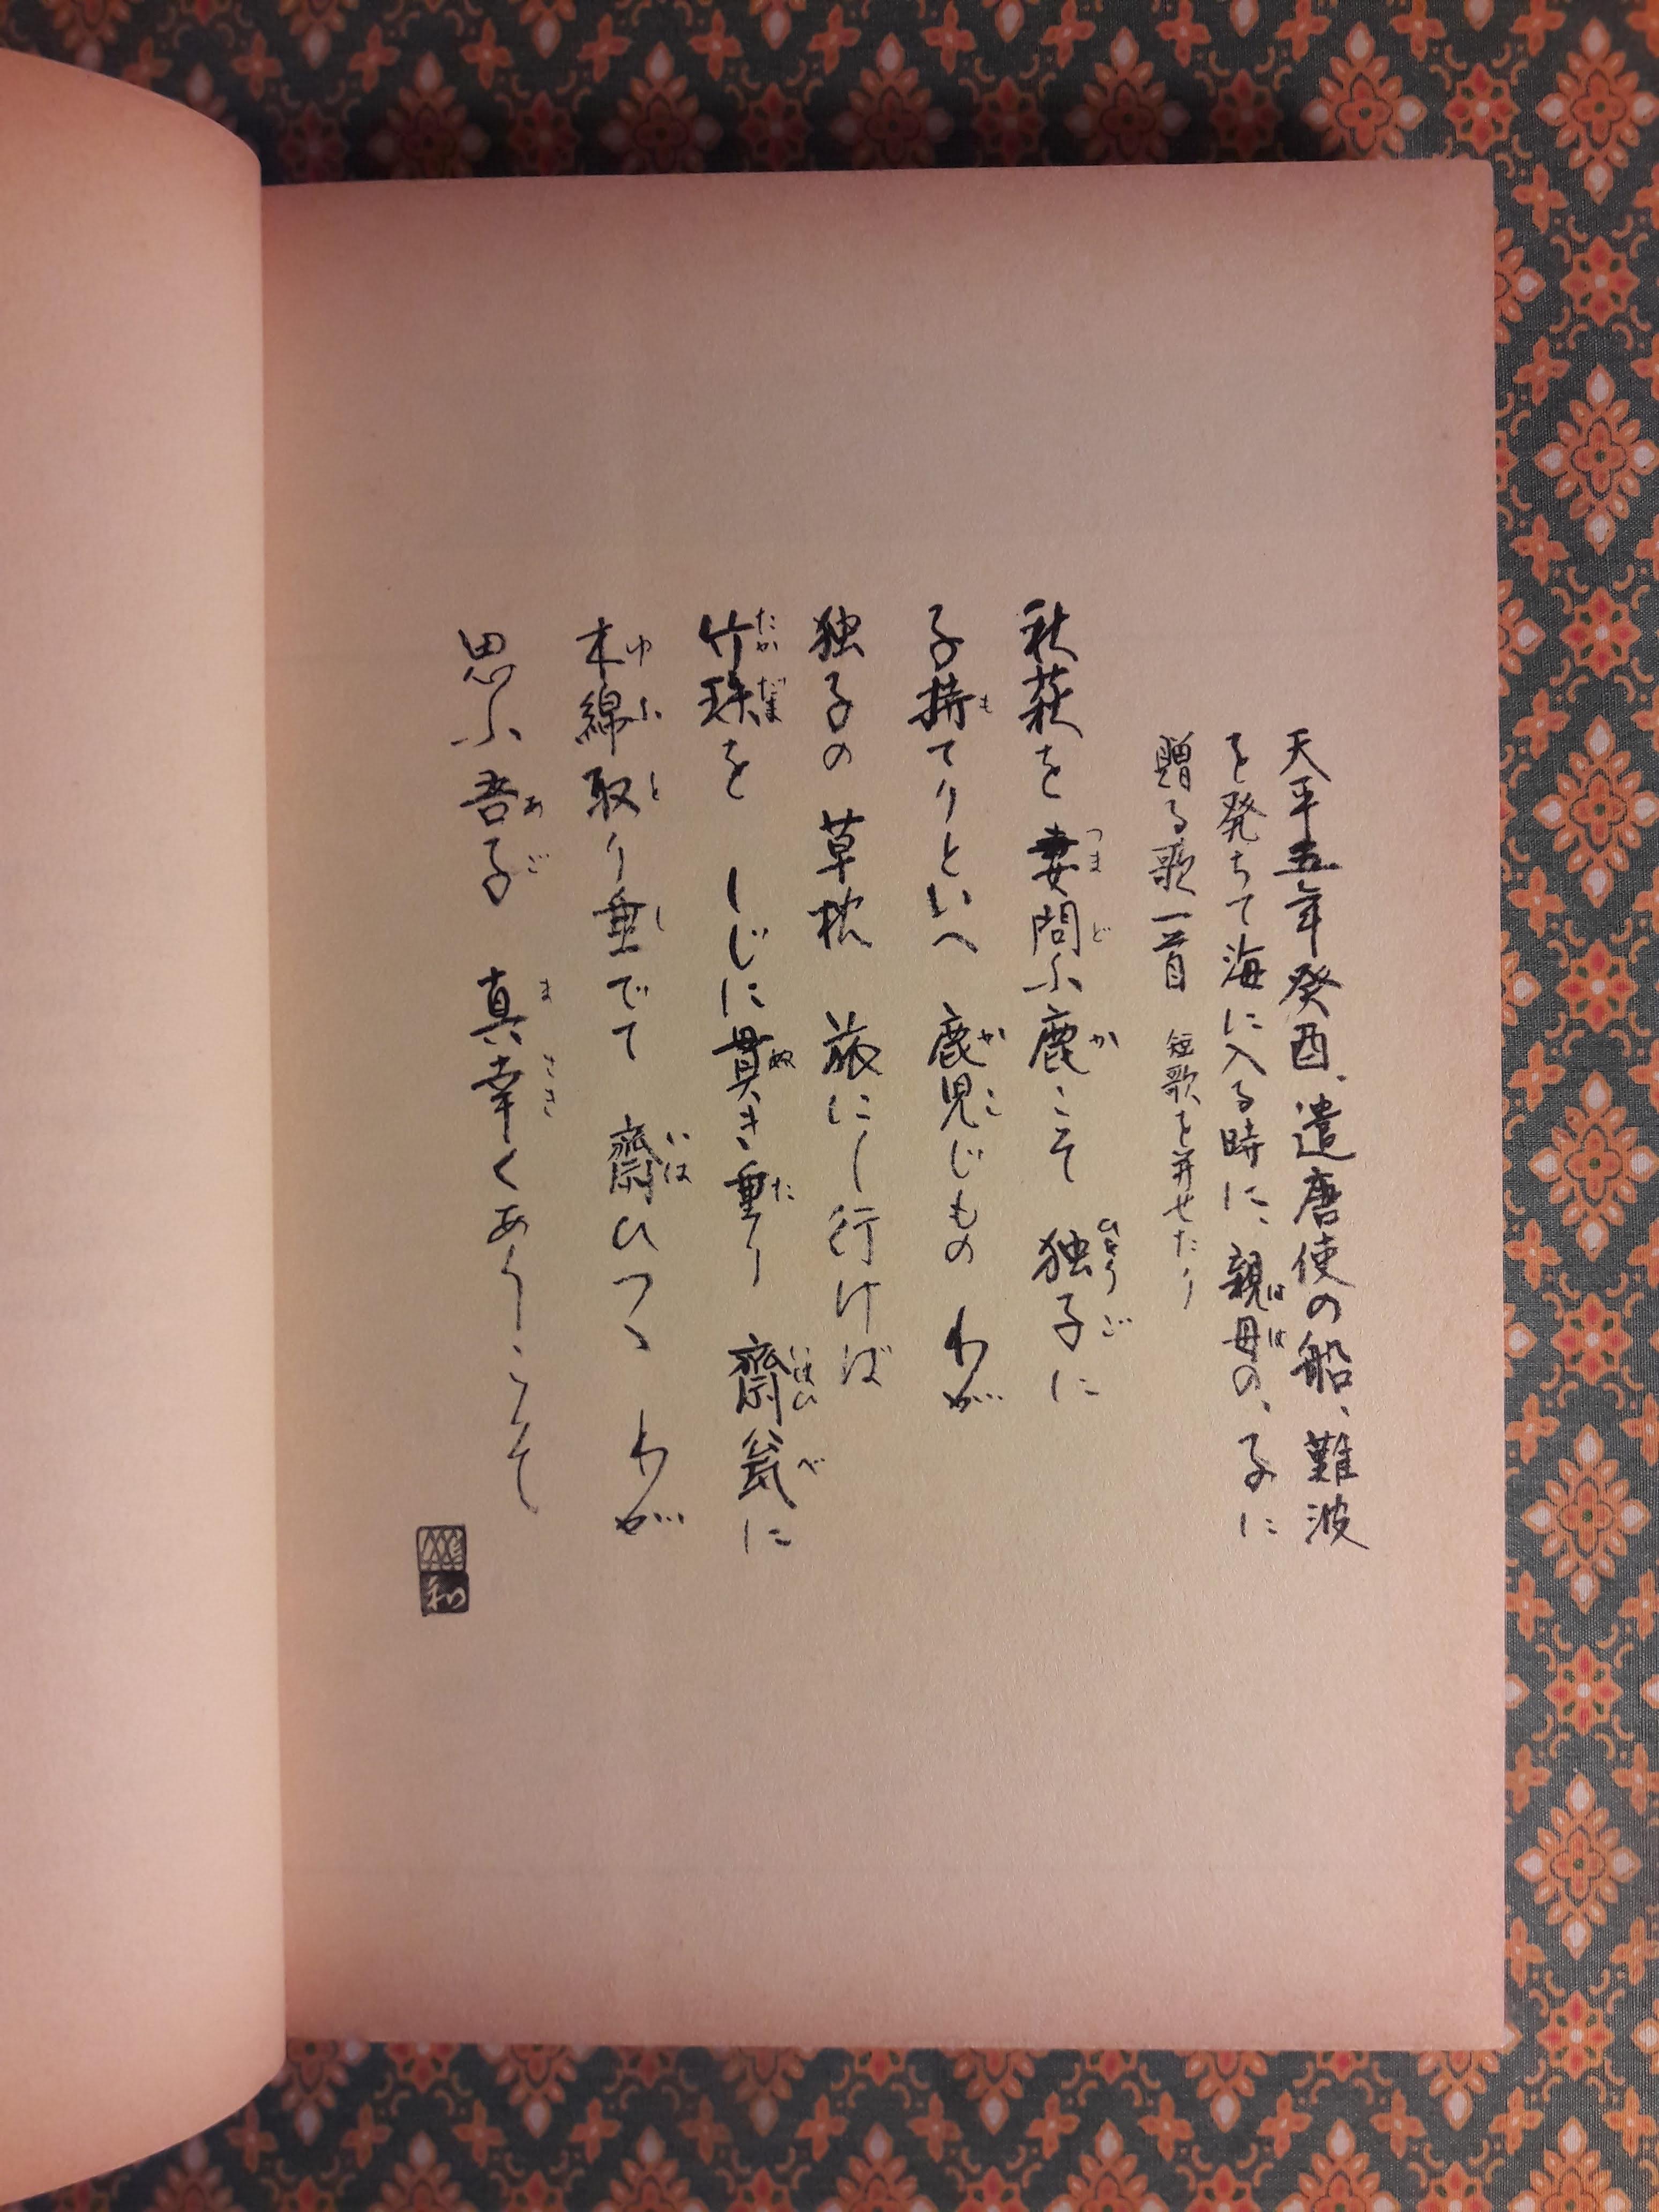 天平五年癸酉、遣唐使の船、難波
を発ちて海に入る時に、親母の、子に
贈る歌一首 短歌を并せたり
秋萩を 妻問ふ鹿こそ 独子に
子持てりといへ 鹿児じもの わが
独子の 草枕 旅にし行けば
竹珠を しじに貫き垂り 齋瓮に
木綿取り垂でて 齋ひつゝ わが
思ふ吾子 真幸くありこそ
和